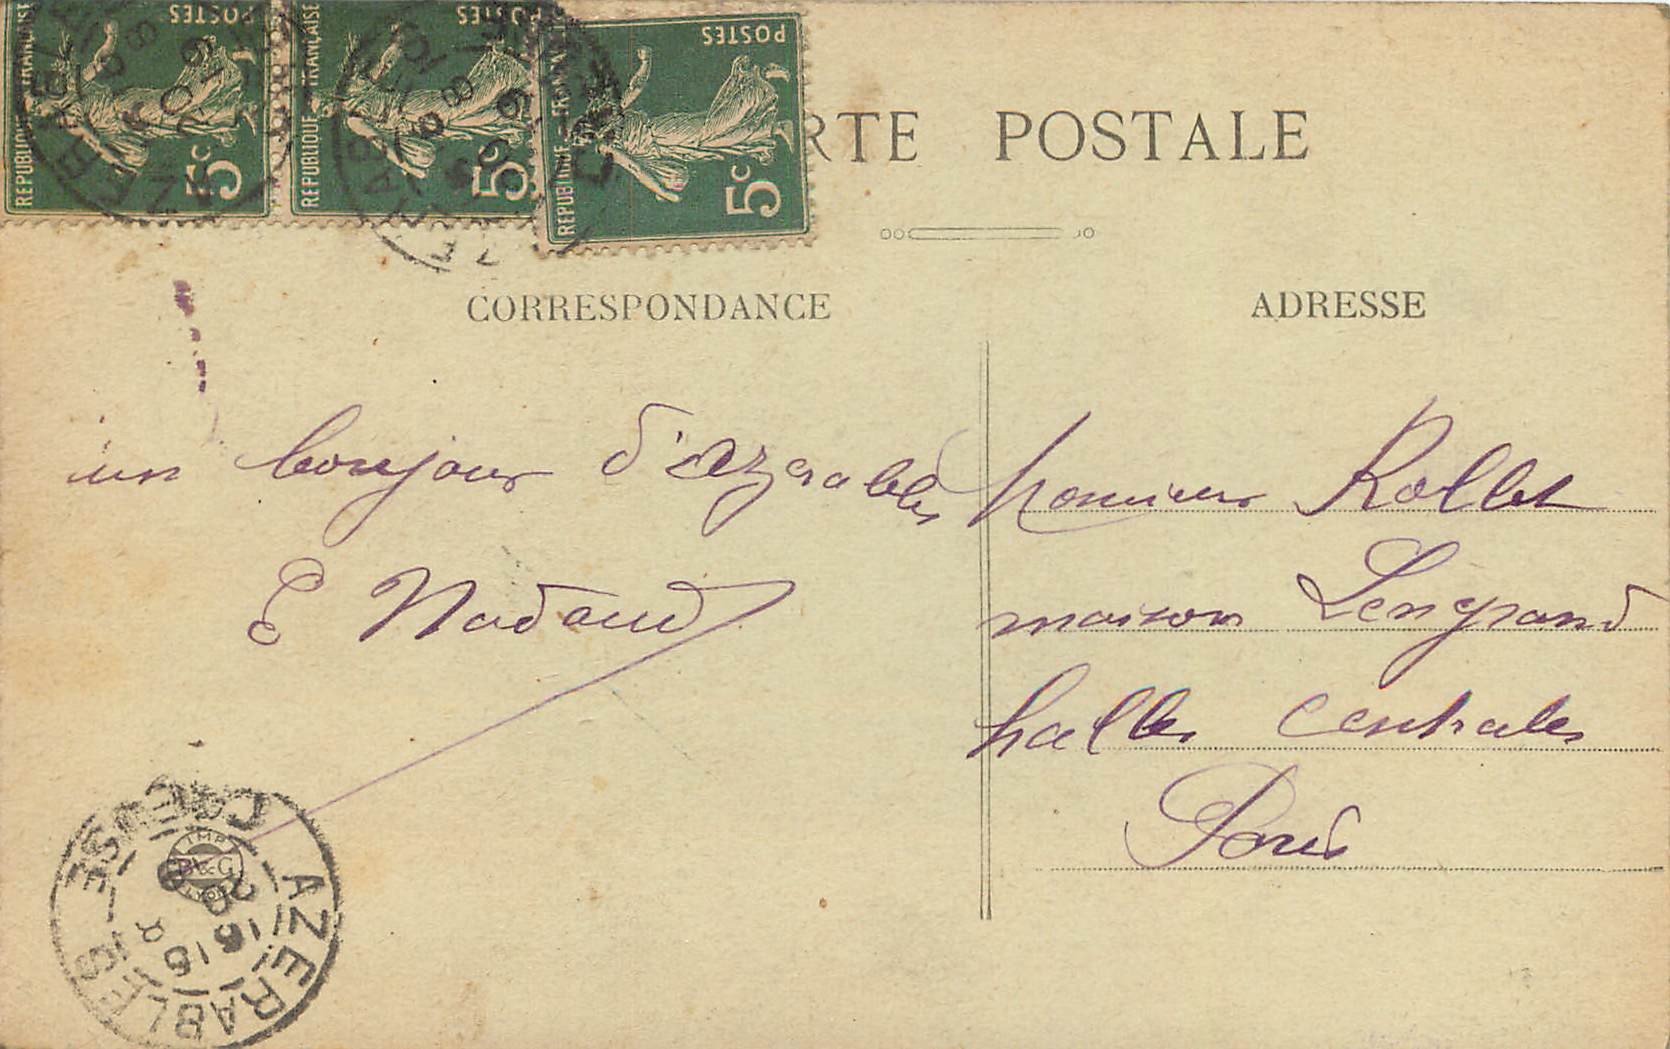 POSTES
REPUBLIQUE FRANÇAISE
5c
POSTES
REPUBLIQUE FRANÇAISE
5c
POSTES
REPUBLIQUE FRANÇAISE
5c
RTE POSTALE
CORRESPONDANCE
ADRESSE
un bonjour d'azerables
E Nadaud
Monsieur Rollet
maison Lengrand
halles centrales
Paris
AZERABLES
CREUSE
IMP